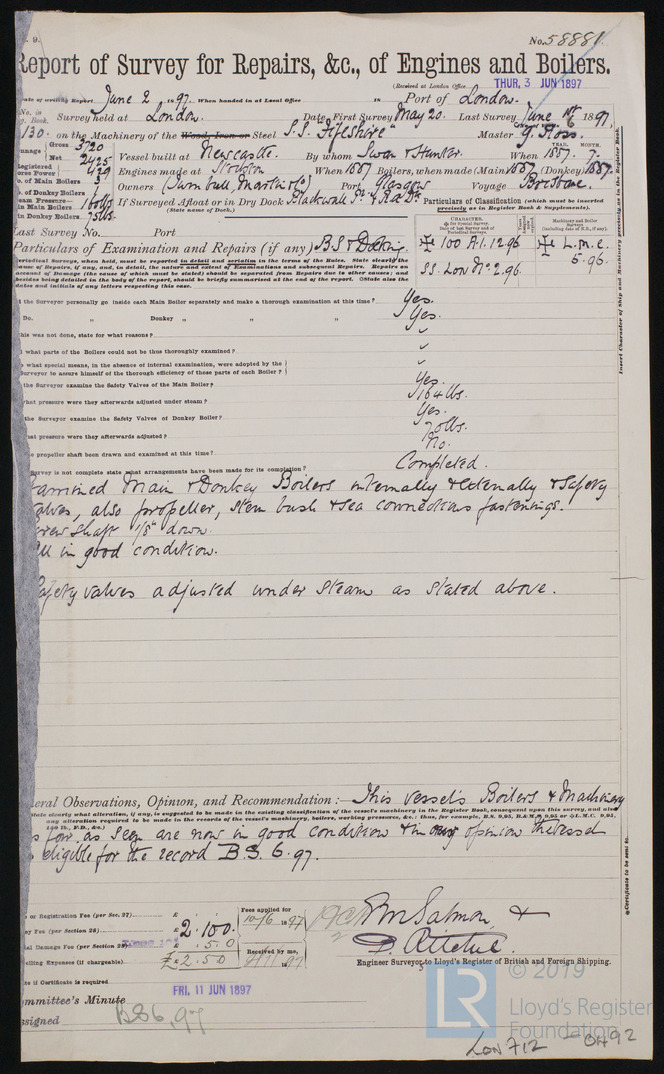 No. 58881.
Report of Survey for Repairs, &c., of Engines and Boilers.
(Received at London Office THUR. 3 JUN 1897
Date of writing Report June 2 1897. When handed in at Local Office 18 Port of London.
No. in Survey held at London. Date, First Survey May 20. Last Survey June 1st 1897.
Reg. Book.
130. on the Machinery of the Wood, Iron or Steel S.S. "Fifeshire" Master G. Ross.
Gross 3720
Net 2425
Vessel built at Newcastle. By whom Swan & Hunter. When 1887. 7.
YEAR. MONTH.
Registered Horse Power 429 Engines made at Stockton When 1887 Boilers, when made (Main) 1887 (Donkey) 1887.
No. of Main Boilers 3 Owners (Turnbull, Martin & Co) Port Glasgow Voyage Brisbane.
No. of Donkey Boilers
Steam Pressure
in Main Boilers 160 lbs If Surveyed Afloat or in Dry Dock Blackwall Pt. & R.A. Dk
(State name of Dock.)
in Donkey Boilers 75 lbs.
Particulars of Classification (which must be inserted precisely as in Register Book & Supplements).
Last Survey No. Port
CHARACTER.
Machinery and Boiler Surveys
Particulars of Examination and Repairs (if any) B.S. & Docking.
✠ 100 A.1. 12.96
✠ L.M.C. 5.96.
SS. Lon No. 2. 96.
Insert Character of Ship and Machinery precisely as in the Register Book.
Periodical Surveys, when held, must be reported in detail and seriatim in the terms of the Rules. State clearly the cause of Repairs, if any, and, in detail, the nature and extent of Examinations and subsequent Repairs. Repairs on account of Damage (the cause of which must be stated) should be separated from Repairs due to other causes; and besides being detailed in the body of the report, should be briefly summarised at the end of the report. State also the dates and initials of any letters respecting this case.
Did the Surveyor personally go inside each Main Boiler separately and make a thorough examination at this time? Yes.
Do. „ Donkey „ „ „ Yes.
If this was not done, state for what reasons? ✓
And what parts of the Boilers could not be thoroughly examined? ✓
And what special means, in the absence of internal examination, were adopted by the
Surveyor to assure himself of the thorough efficiency of those parts of each Boiler? ✓
Did the Surveyor examine the Safety Valves of the Main Boiler? Yes.
To what pressure were they afterwards adjusted under steam? 164 lbs.
Did the Surveyor examine the Safety Valves of Donkey Boiler? Yes.
To what pressure were they afterwards adjusted? 70 lbs.
Has the propeller shaft been drawn and examined at this time? No.
If the Survey is not complete state what arrangements have been made for its completion? Completed.
Examined Main & Donkey Boilers internally & externally & safety
valves, also propeller, stern bush & sea connections fastenings.
Screw Shaft 1/8" down.
All in good condition.
Safety valves adjusted under steam as stated above.
General Observations, Opinion, and Recommendation:— This vessel's Boilers & Machinery
(State clearly what alteration, if any, is suggested to be made in the existing classification of the vessel's machinery in the Register Book, consequent upon this survey, and also any alteration required to be made in the records of the vessel's machinery, boilers, working pressures, &c.: thus, for example, B.S. 9,95, B.&M.S. 9,95 or ✠L.M.C. 9,95, 150 lb., F.D., &c.)
as far as seen are now in good condition & in my opinion the vessel
is eligible for the record B.S. 6. 97.
Certificate to be sent to.
or Registration Fee (per Sec. 27) £
Survey Fee (per Section 28) £ 2. 10 0.
Special Damage Fee (per Section 28) £ . 5. 0
Travelling Expenses (if chargeable) £ 2. 5 0
Fees applied for
10/6 1897
Received by me,
1897
R. M. Salmon &
D. Ritchie.
Engineer Surveyor to Lloyd's Register of British and Foreign Shipping.
State if Certificate is required
Committee's Minute FRI. 11 JUN 1897
Assigned BS 6,97
LR
© 2019
Lloyd's Register
Foundation
LON 712 - 0492